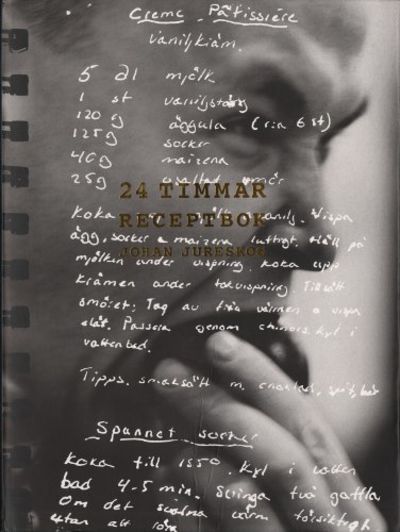 Creme Pâtissière
vaniljkräm.
5 dl mjölk
1 st vaniljstång
120 g äggula (ca 6 st)
125 g socker
40 g maizena
25 g osaltat smör
24 TIMMAR
RECEPTBOK
JOHAN JURESKOG
Koka vanilj. Vispa
ägg, socker & maizena luftigt. Häll på
mjölken under vispning. koka upp
krämen under vispning. Tillsätt
smöret. Tag av från värmen & vispa
slät. Passera genom chinois. kyl i
vattenbad.
Tipps. smaksätt m. choklad,
Spunnet socker
Koka till 155°. kyl i vatten
bad 4-5 min. Svinga två gafflar
Om det svalna värm försiktigt
utan att röra